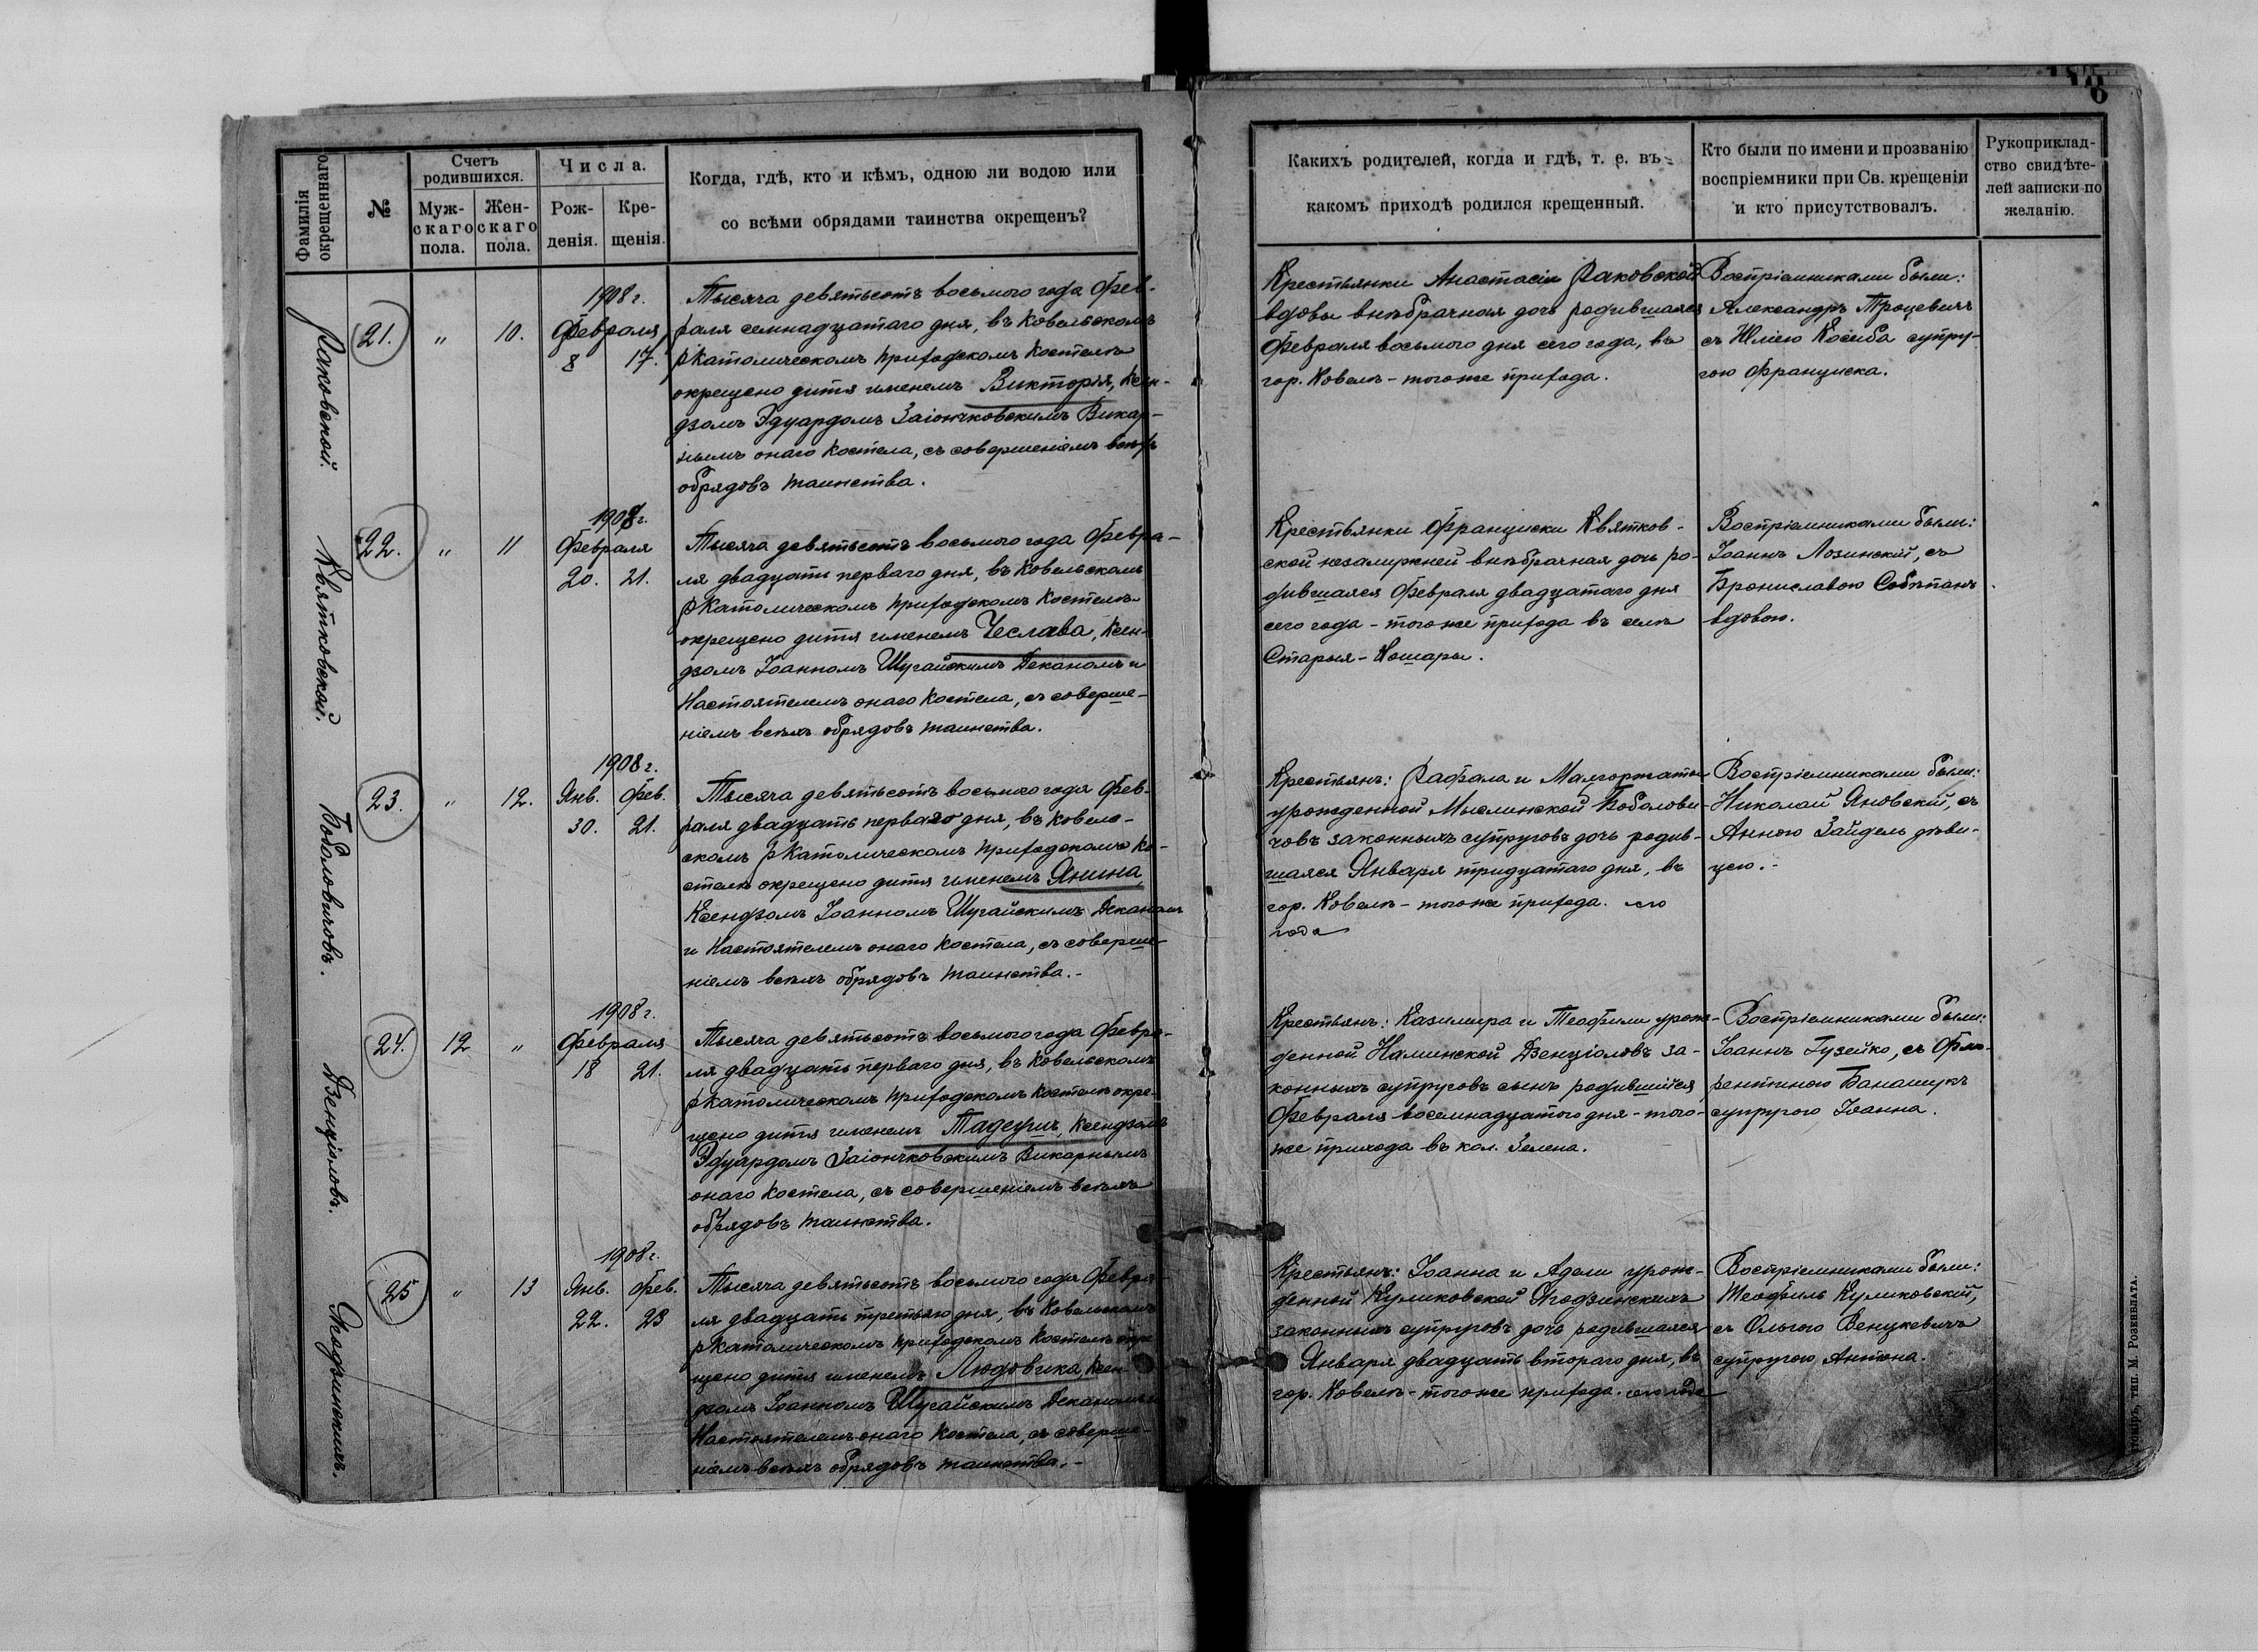 Фамилія окрещеннаго
№
Счетъ родившихся.
Мужскаго пола.
Женскаго пола.
Числа.
Рожденія.
Крещенія.
Когда, гдѣ, кто и кѣмъ, одною ли водою или
со всѣми обрядами таинства окрещенъ?
Раковской.
21.
"
10.
1908 г.
Февраля
8
17.
Тысяча девятьсотъ восьмого года Фев-
раля семнадцатаго дня, въ Ковельскомъ
рКатолическомъ приходскомъ Костелѣ
окрещено дитя именемъ Викторія, Ксен-
дзомъ Эдуардомъ Заіончковскимъ Викар-
нымъ онаго Костела, съ совершеніемъ всѣхъ
обрядовъ таинства.
Квятковской.
22.
"
11
1908 г.
Февраля
20.
21.
Тысяча девятьсотъ восьмого года Февра-
ля двадцать перваго дня, въ Ковельскомъ
рКатолическомъ приходскомъ Костелѣ
окрещено дитя именемъ Чеслава, Ксен-
дзомъ Іоанномъ Шугайскимъ Деканомъ и
Настоятелемъ онаго Костела, съ соверше-
ніемъ всѣхъ обрядовъ таинства.
Боболовичовъ.
23.
"
12.
1908 г.
Янв.
Фев.
30.
21.
Тысяча девятьсотъ восьмого года Фев-
раля двадцать перваго дня, въ Ковель-
скомъ рКатолическомъ приходскомъ Ко-
стелѣ окрещено дитя именемъ Янина,
Ксендзомъ Іоанномъ Шугайскимъ Деканомъ
и Настоятелемъ онаго Костела, съ соверше-
ніемъ всѣхъ обрядовъ таинства.-
Дзенціоловъ.
24.
12
"
1908 г.
Февраля
18
21.
Тысяча девятьсотъ восьмого года Февра-
ля двадцать перваго дня, въ Ковельскомъ
рКатолическомъ приходскомъ Костелѣ окре-
щено дитя именемъ Тадеушъ, Ксендзомъ
Эдуардомъ Заіончковскимъ Викарнымъ
онаго Костела, съ совершеніемъ всѣхъ
обрядовъ таинства.
Ягодзинскихъ.
25
"
13
1908 г.
Янв.
Фев.
22.
23
Тысяча девятьсотъ восьмого года Февра-
ля двадцать третьяго дня, въ Ковельскомъ
рКатолическомъ приходскомъ Костелѣ окре-
щено дитя именемъ Людовика, Ксен-
дзомъ Іоанномъ Шугайскимъ Деканомъ и
Настоятелемъ онаго Костела, съ соверше-
ніемъ всѣхъ обрядовъ таинства.-
6
Какихъ родителей, когда и гдѣ, т. е. въ
какомъ приходѣ родился крещенный.
Кто были по имени и прозванію
воспріемники при Св. крещеніи
и кто присутствовалъ.
Рукоприклад-
ство свидѣте-
лей записки по
желанію.
Крестьянки Анастасіи Раковской
вдовы внѣбрачная дочь родившаяся
Февраля восьмого дня сего года, въ
гор. Ковелѣ - тогоже прихода.
Воспріемниками были:
Александръ Троцевичъ
съ Юліею Косиба супру-
гою Франциска.
Крестьянки Франциски Квятков-
ской незамужней внѣбрачная дочь ро-
дившаяся Февраля двадцатаго дня
сего года - тогоже прихода въ селѣ
Старыя-Кошары.
Воспріемниками были:
Іоаннъ Лозинскій, съ
Брониславою Собѣпанъ
вдовою.
Крестьянъ: Рафала и Малгоржаты
урожденной Мыслинской Боболови-
човъ законныхъ супруговъ дочь родив-
шаяся Января тридцатаго дня, въ
гор. Ковелѣ - тогоже прихода. сего
года
Воспріемниками были:
Николай Яновскій, съ
Анною Зайдель дѣви-
цею.-
Крестьянъ: Казимира и Теофили урож-
денной Каминской Дзенціоловъ за-
конныхъ супруговъ сынъ родившійся
Февраля восемнадцатого дня - того-
же прихода въ кол. Зелена.
Воспріемниками были:
Іоаннъ Гузейко, съ Фло-
рентиною Банашукъ
супругою Іоанна.
Крестьянъ: Іоанна и Адели урож-
денной Куликовской Ягодзинскихъ
законныхъ супруговъ дочь родившаяся
Января двадцать втораго дня, въ
гор. Ковелѣ - тогоже прихода. сего года
Воспріемниками были:
Теофиль Куликовскій,
съ Ольгою Венцкевичъ
супругою Антона.
тип. М. Розенблата.